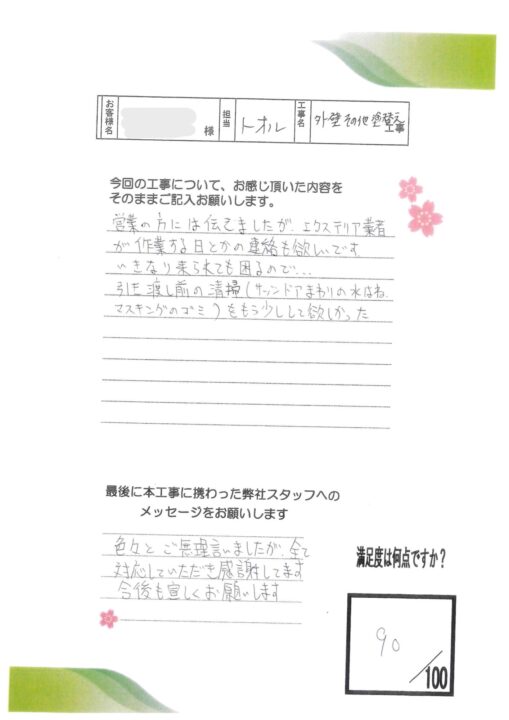 お客様名 様 担当 トオル 工事名 外壁その他塗替え工事
今回の工事について、お感じ頂いた内容を
そのままご記入お願いします。
営業の方には伝えましたが、エクステリア業者
が作業する日とかの連絡も欲しいです
いきなり来られても困るので...
引き渡し前の清掃(サッシ、ドアまわりの水はね、
マスキングのゴミ)をもう少しして欲しかった
最後に本工事に携わった弊社スタッフへの
メッセージをお願いします
色々とご無理言いましたが、全て
対応していただき感謝してます
今後も宜しくお願いします
満足度は何点ですか?
90/100